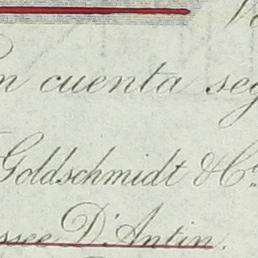 n cuenta seg
Goldschmidt & Cª
ssee D'Antin.